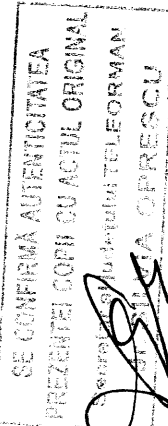 SE CONFIRMĂ AUTENTICITATEA
PREZENTEI COPII CU ACTUL ORIGINAL
Secretarul Județului TELEORMAN
OPRESCU